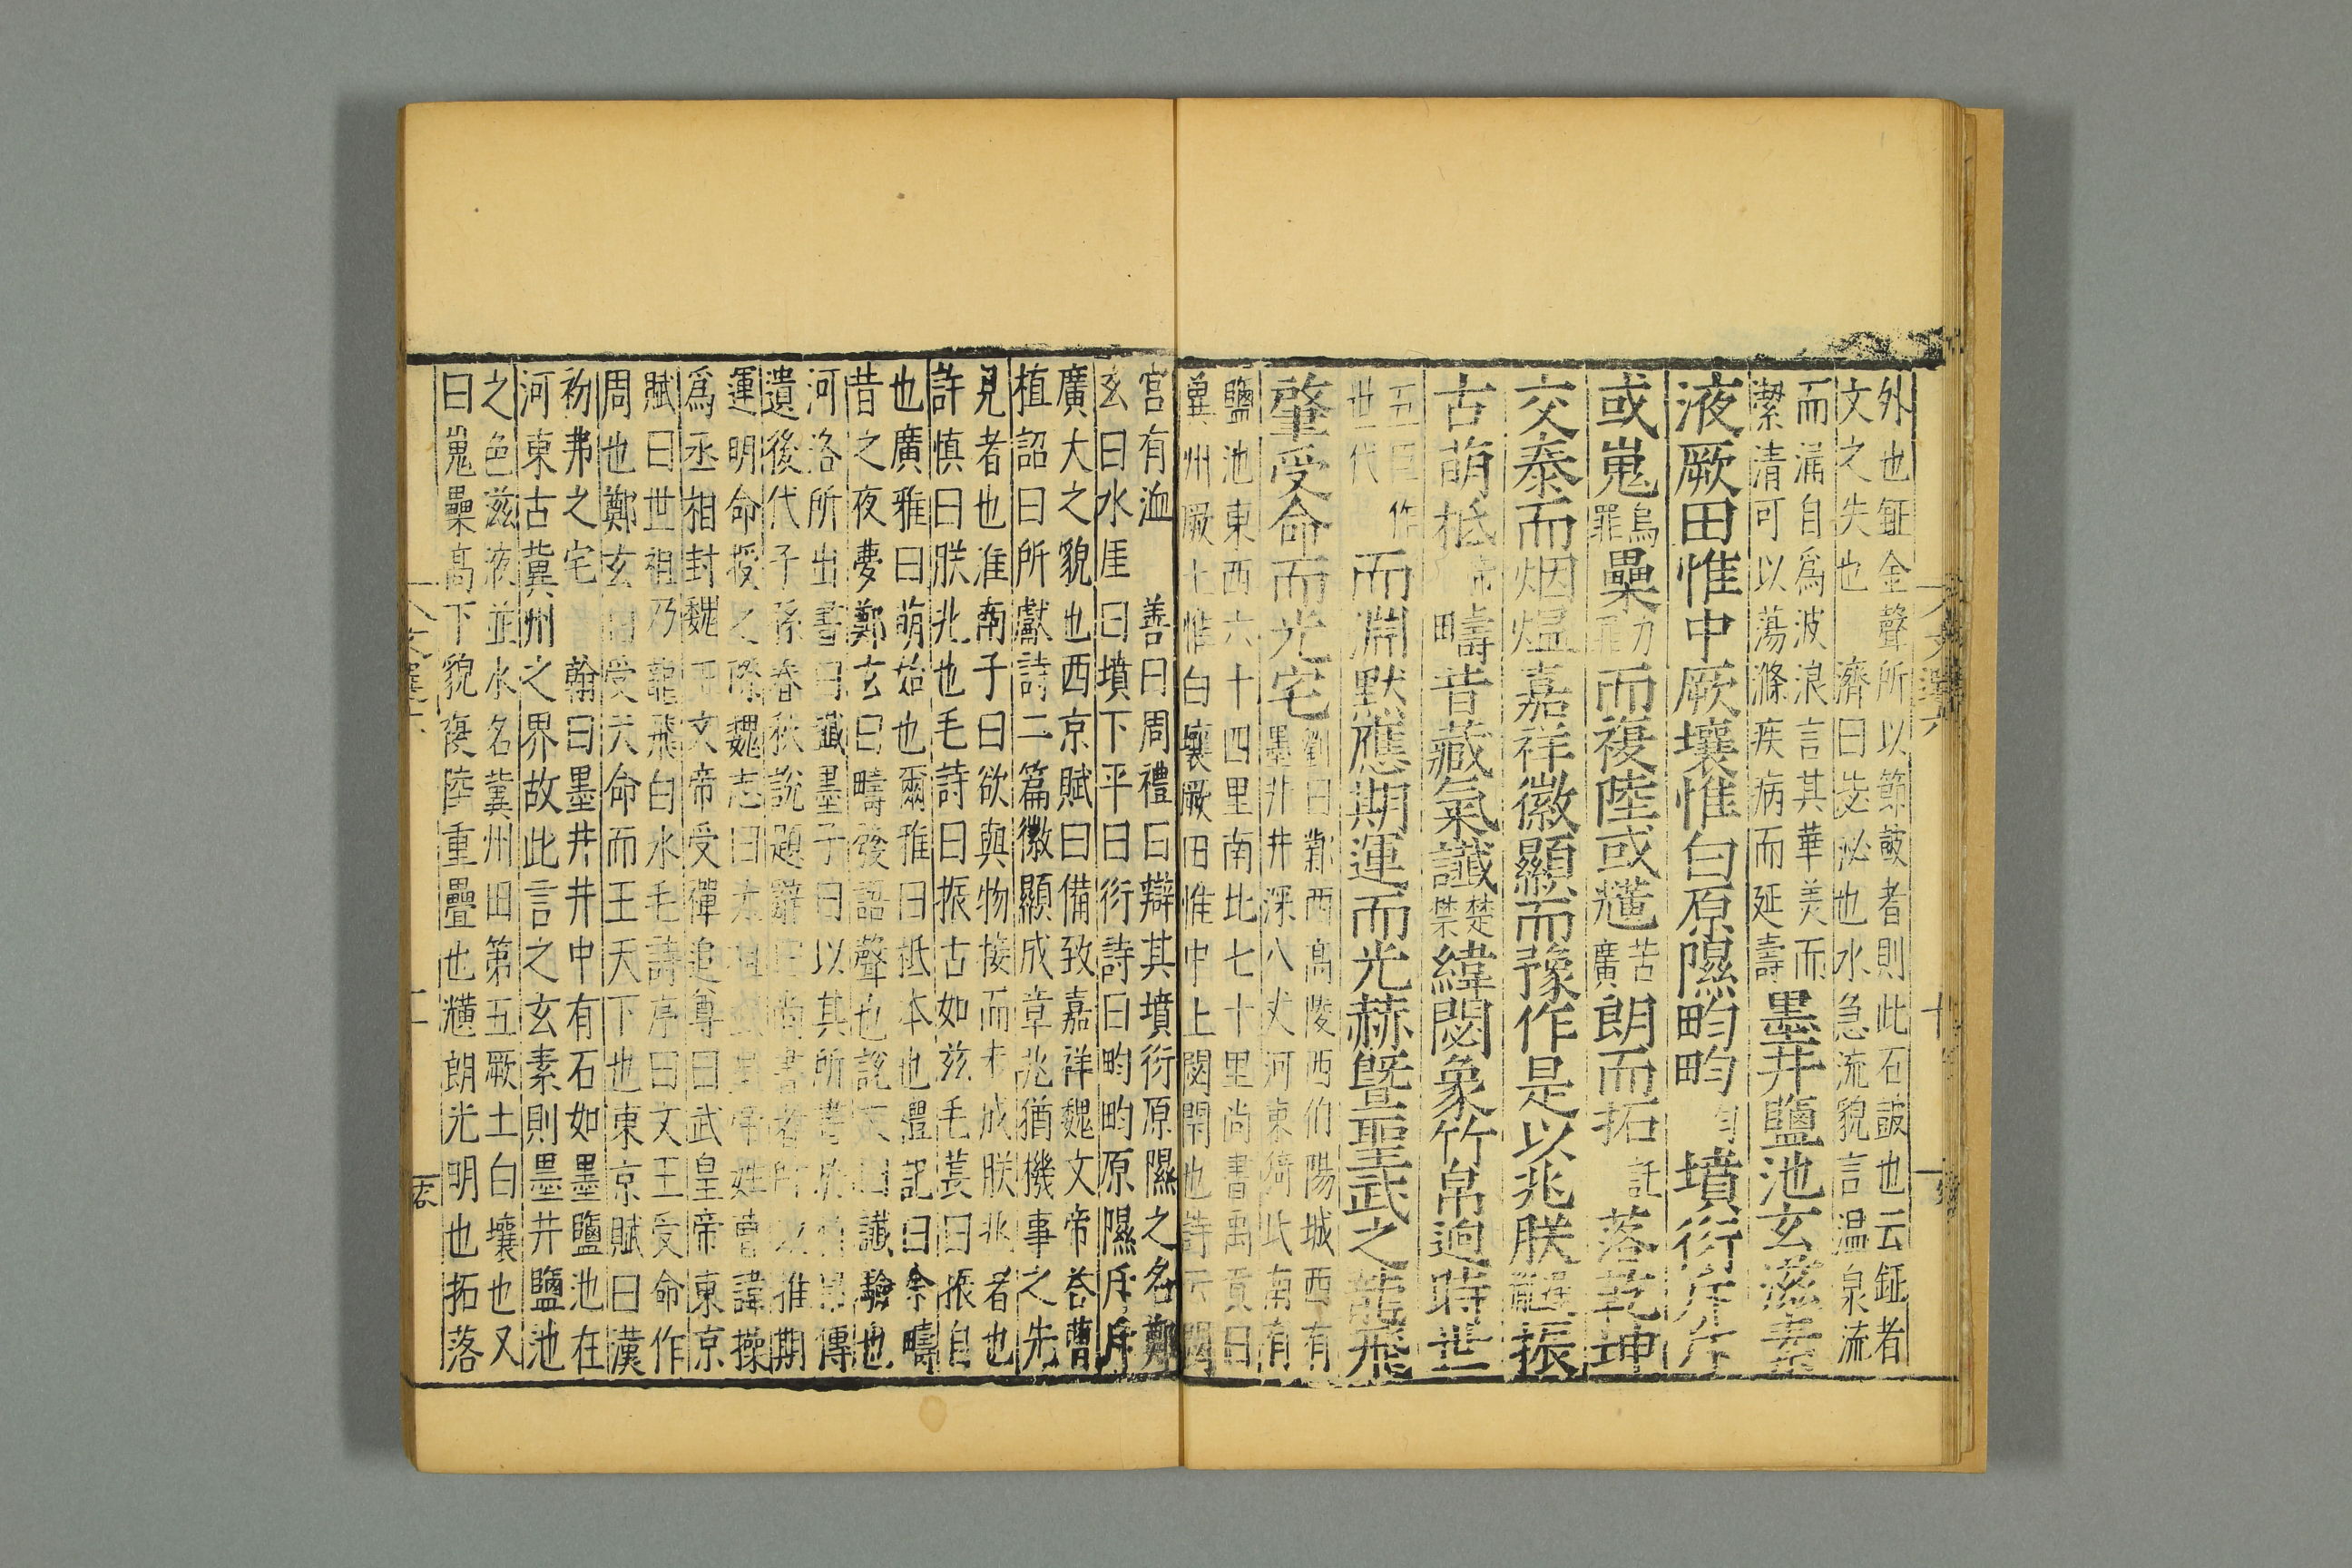 外也鉦金聲所以節皷者則此石皷也云鉦者
文之失也 濟曰毖泌也水急流貌言温泉流
而漏自爲波浪言其華美而
潔清可以蕩滌疾病而延壽
墨井鹽池玄滋素
液厥田惟中厥壤惟白原隰畇畇勻墳衍斥斥
或嵬烏罪壘力罪而複陸或爌苦廣朗而拓託落乾坤
交泰而烟熅嘉祥徽顯而豫作是以兆朕振
古萌柢帝疇昔藏氣讖楚禁緯閟象竹帛逈時世
五臣作世代而淵默應期運而光赫曁聖武之龍飛
肇受命而光宅
劉曰鄴西高陵西伯陽城西有
墨井井深八丈河東猗氏南有
鹽池東西六十四里南北七十里尚書禹貢曰
冀州厥土惟白壤厥田惟中上閟閉也詩云閟
宮有洫 善曰周禮曰辯其墳衍原隰之名鄭
玄曰水厓曰墳下平曰衍詩曰畇畇原隰斥斥
廣大之貌也西京賦曰備致嘉祥魏文帝荅曹
植詔曰所獻詩二篇徽顯成章兆猶機事之先
見者也淮南子曰欲與物接而未成朕兆者也
許愼曰朕兆也毛詩曰振古如兹毛萇曰振自
也廣雅曰萌始也爾雅曰柢本也禮記曰余疇
昔之夜夢鄭玄曰疇發語聲也說文曰讖驗也
河洛所出書曰讖墨子曰以其所書於竹帛傳
遺後代子孫春秋說題辭曰尚書者所以推期
運明命授之際魏志曰太祖武皇帝姓曹諱操
爲丞相封魏王文帝受禪追尊曰武皇帝東京
賦曰世祖乃龍飛白水毛詩序曰文王受命作
周也鄭玄曰受天命而王天下也東京賦曰漢
初弗之宅 翰曰墨井井中有石如墨鹽池在
河東古冀州之界故此言之玄素則墨井鹽池
之色滋液並水名冀州田第五厥土白壤也又
曰嵬壘高下貌複陸重疊也爌朗光明也拓落